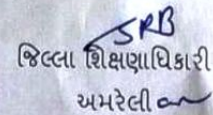 SRB
જિલ્લા શિક્ષણાધિકારી
અમરેલી